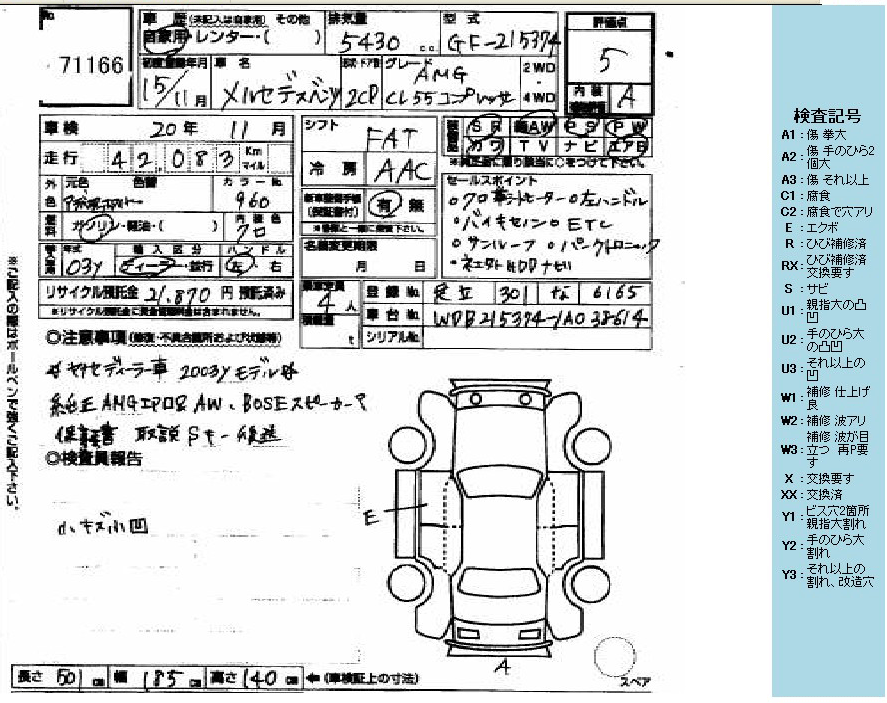 No.
71166
車歴 (未記入は自家用) その他
自家用・レンター・( )
排気量
5430 c.c.
型式
GF-215374
評価点
5
内装
A
初度登録年月
15/11月
車名
メルセデスベンツ
形状・ドア数
2CP
グレード
AMG
CL55コンプレッサ
2WD
・
4WD
車検 20年 11月
シフト
FAT
SR AW PS PW
カワ TV ナビ エアB
走行 42,083 Km マイル
冷房 AAC
外色 元色 色替
カラーNo.
960
セールスポイント
○クロ革シートヒーター ○左ハンドル
○バイキセノン ○ETC
○サンルーフ ○パークトロニック
有 無
燃料 ガソリン・軽油・( )
内装色
クロ
名義変更期限
月 日
年式 輸入区分 ハンドル
03y ディーラー・並行 左・右
リサイクル預託金 21,870 円 預託済み
※リサイクル預託金に資金管理料金は含まれません。
乗車定員
4人
積載量
t
登録No. 足立 301 な 6165
車台No. WDB215374-1A038614
シリアルNo.
◎注意事項(修復・不具合箇所および状態等)
ヤナセディーラー車 2003yモデル
純正AMGエアロ AW、BOSEスピーカー
保証書 取説 Sキー 後送
◎検査員報告
小キズ小凹
E
A
スペア
長さ 501 cm 幅 185 cm 高さ 140 cm ←(車検証上の寸法)
※ご記入の際はボールペンで強くご記入下さい。
検査記号
A1:傷 拳大
A2:傷 手のひら2個大
A3:傷 それ以上
C1:腐食
C2:腐食で穴アリ
E:エクボ
R:ひび補修済
RX:ひび補修済 交換要す
S:サビ
U1:親指大の凸凹
U2:手のひら大の凸凹
U3:それ以上の凹
W1:補修 仕上げ良
W2:補修 波アリ
W3:補修 波が目立つ 再P要す
X:交換要す
XX:交換済
Y1:ビス穴2箇所 親指大割れ
Y2:手のひら大割れ
Y3:それ以上の割れ、改造穴